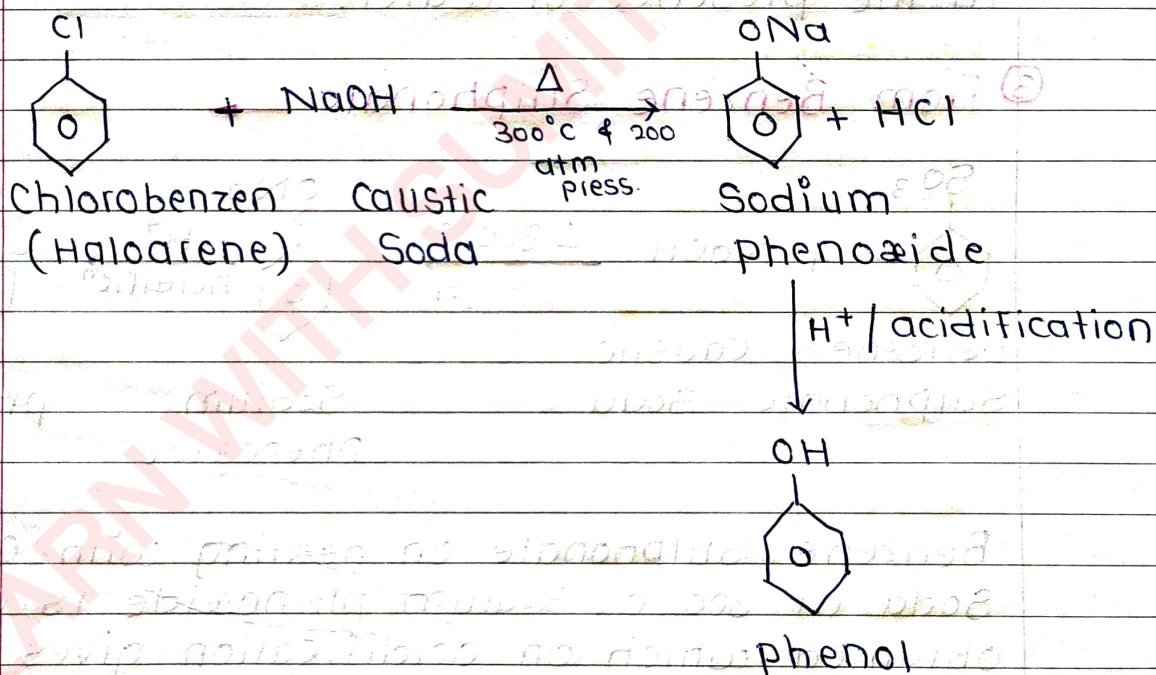 Cl
ONa
+ NaOH
Δ
300°C & 200
atm
press.
+ HCl
Chlorobenzen
(Haloarene)
Caustic
Soda
Sodium
phenoxide
H+ / acidification
OH
phenol
ARN WITH SUMIT